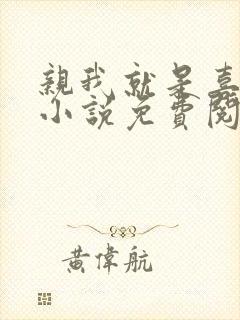 親我就呆嘉
小說免費閱
黃偉航